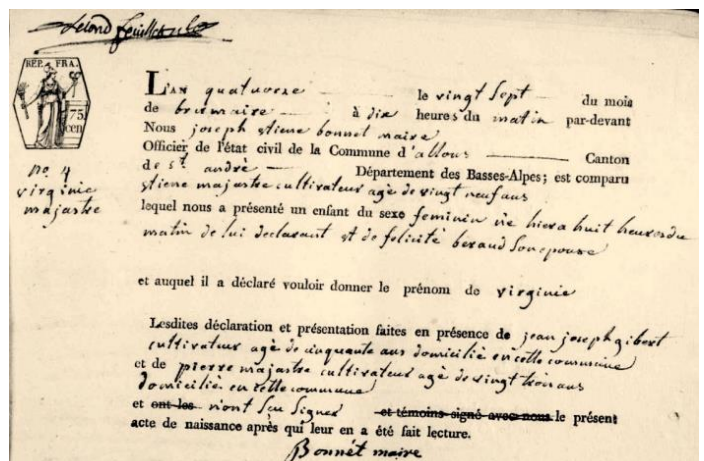 second feuillet
RÉP. FRA.
75 cen
no. 4
virginie
majastre
L'AN quatuorze le vingt Sept du mois
de brumaire à dix heures du matin par-devant
Nous joseph etiene bonnet maire
Officier de l'état civil de la Commune d'allons Canton
de st. andré Département des Basses-Alpes; est comparu
etiene majastre cultivateur agé de vingt neuf ans
lequel nous a présenté un enfant du sexe feminin née hier a huit heures du
matin de lui declarant et de felicité beraud Son epouse
et auquel il a déclaré vouloir donner le prénom de virginie
Lesdites déclaration et présentation faites en présence de jean joseph gibert
cultivateur agé de cinquante ans domicilié en cette commune
et de pierre majastre cultivateur agé de vingt trois ans
domicilié en cette commune
et ont les n'ont Seu Signer et témoins signé avec nous le présent
acte de naissance après qui leur en a été fait lecture.
Bonnet maire